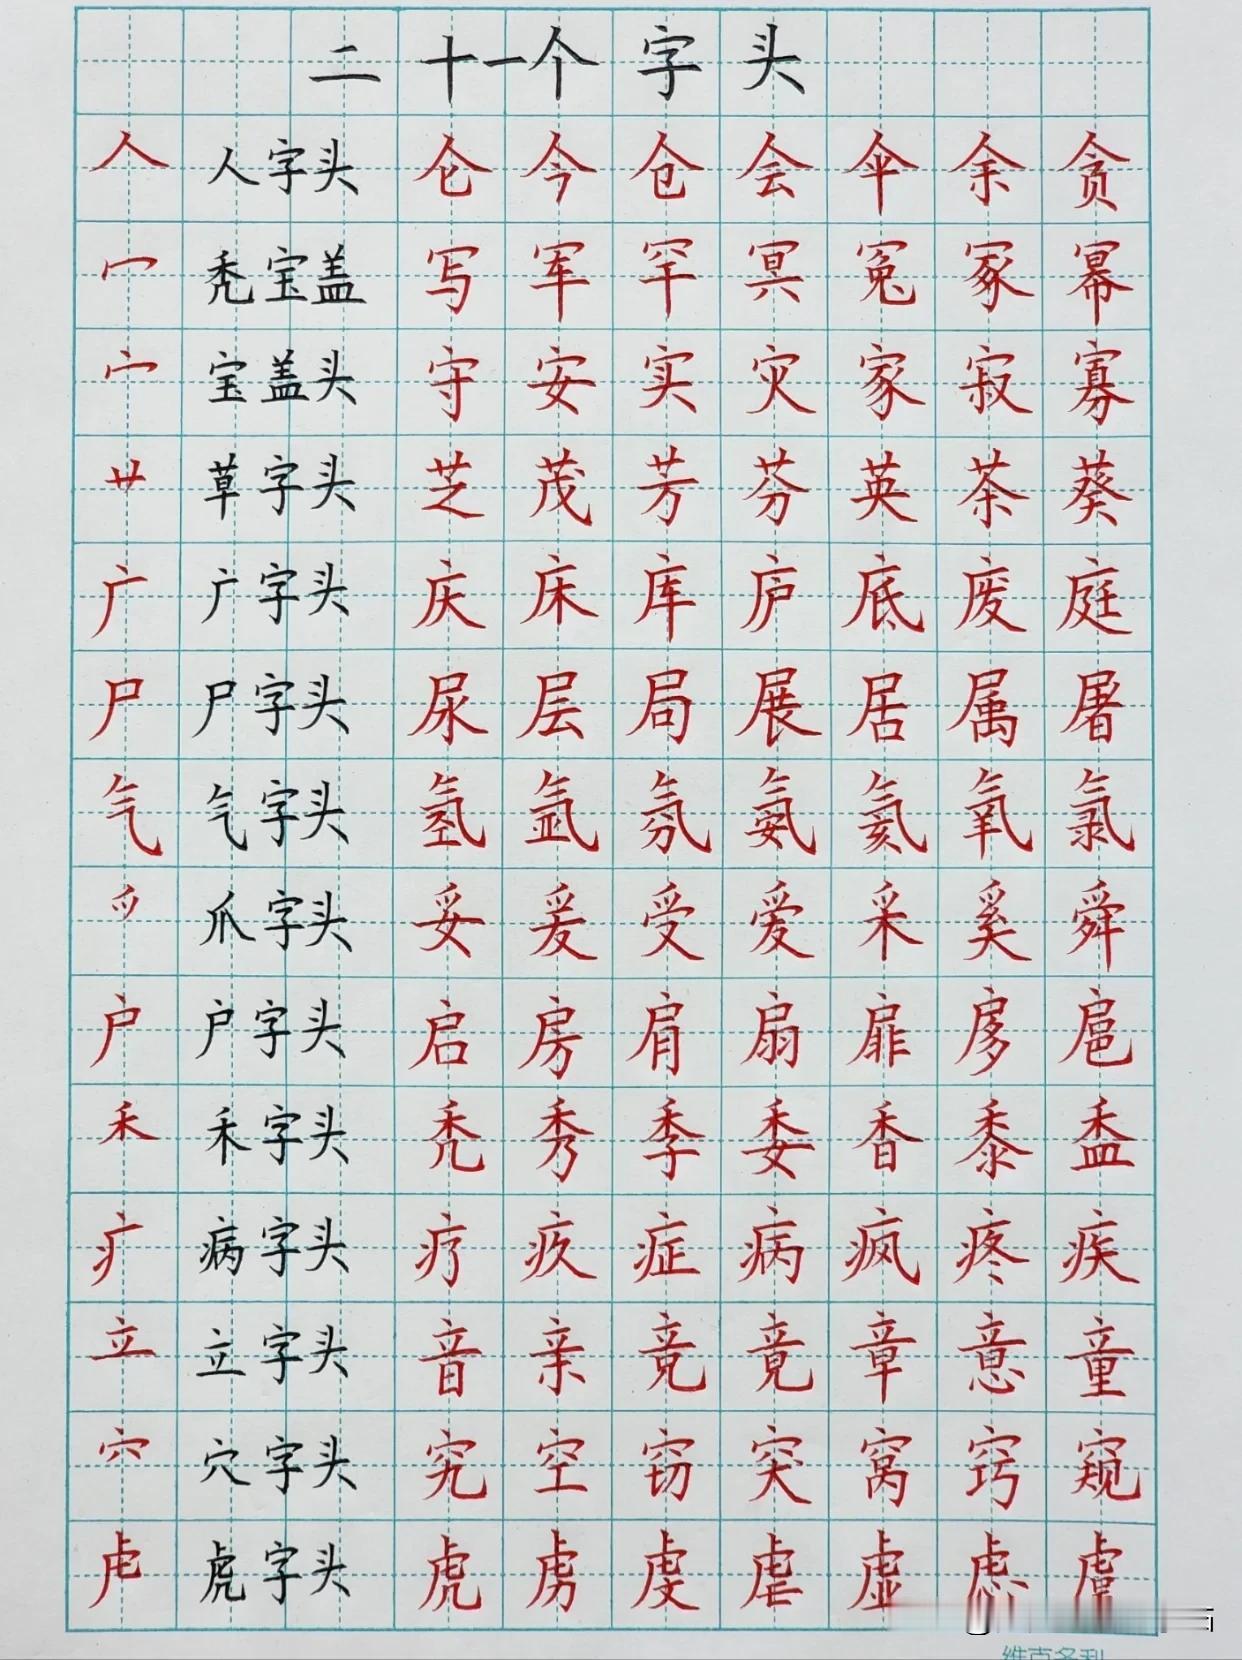 二十一个字头
人 人字头 仑 今 仓 会 伞 余 贪
冖 秃宝盖 写 军 罕 冥 冤 冢 幂
宀 宝盖头 守 安 实 灾 家 寂 寡
艹 草字头 芝 茂 芳 芬 英 茶 葵
广 广字头 庆 床 库 庐 底 废 庭
尸 尸字头 尿 层 局 展 居 属 屠
气 气字头 氢 氩 氛 氨 氦 氧 氯
爫 爪字头 妥 爰 受 爱 采 奚 舜
户 户字头 启 房 肩 扇 扉 扅 扈
禾 禾字头 秃 秀 季 委 香 黍 盉
疒 病字头 疗 疚 症 病 疯 疼 疾
立 立字头 音 亲 竞 竟 章 意 童
穴 穴字头 究 空 窃 突 窝 窍 窥
虍 虎字头 虎 虏 虔 虐 虚